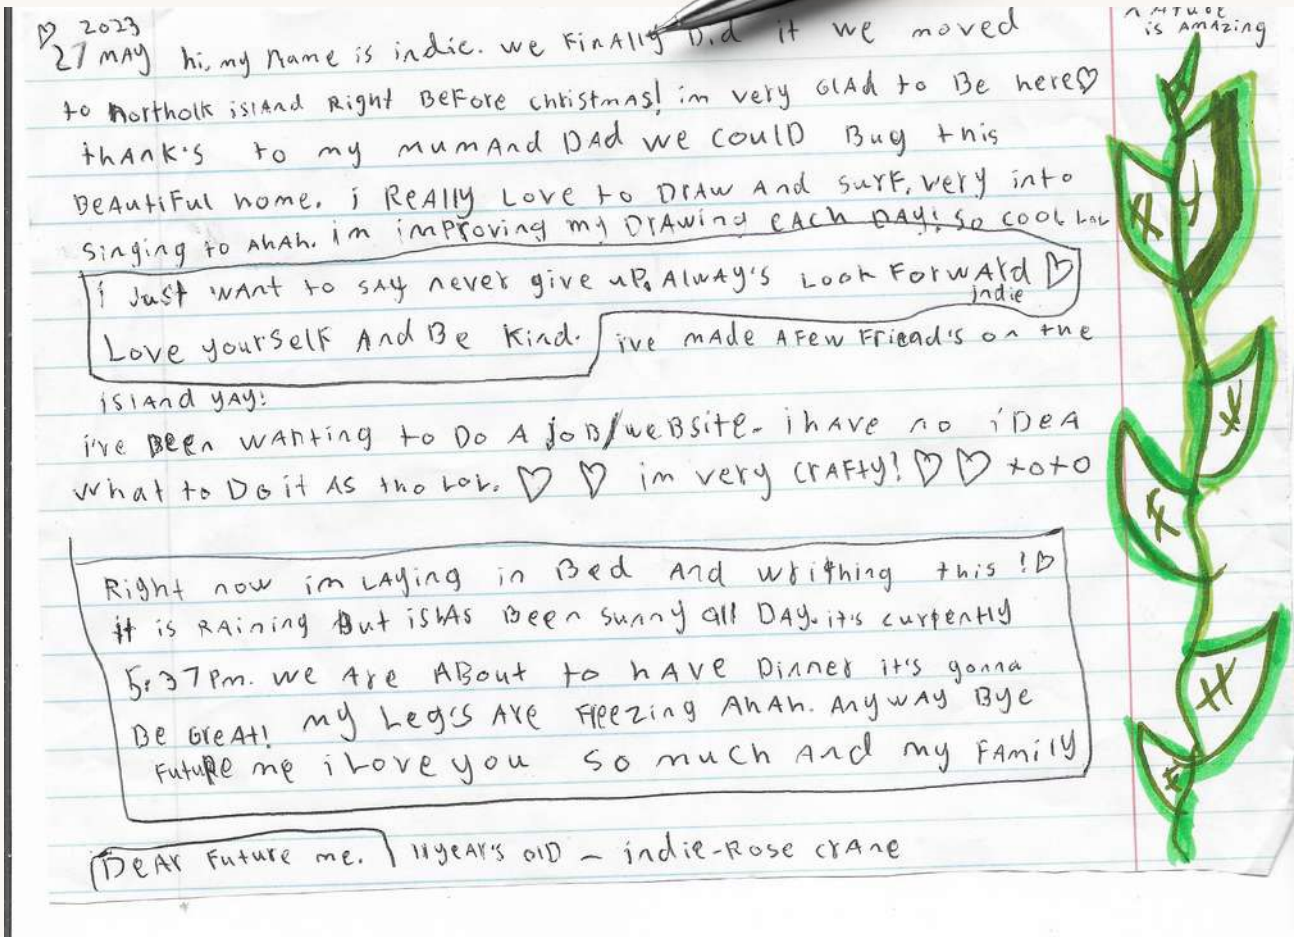 ♡ 2023
27 MAY hi, my name is indie. we FinAlly Did it we moved
to northolk islAnd Right BeFore christmAs! im very GlAd to Be here♡
thAnk's to my mumAnd DAd we coulD Bug this
BeAutiFul home. i ReAlly Love to DrAw And surf, very into
singing to AhAh. im imProving my DrAwing eAch DAy! so cool LoL
i Just wAnt to sAy never give uP. AlwAy's Look ForwArd ♡
indie
Love yourSelF And Be Kind. ive mADe A Few Friend's on the
islAnd yAy!
i've Been wAnting to Do A joB/weBsite. i hAve no iDeA
what to Do it AS tho LoL. ♡ ♡ im very crAFty! ♡ ♡ xoxo
Right now im LAying in Bed And writhing this ! ♡
it is RAining But ishAs Been sunny all DAy. it's currently
5:37 Pm. we Are ABout to hAve Dinner it's gonna
Be GreAt! my Leg's Are Freezing AhAh. AnywAy Bye
Future me i Love you so much And my FAmily
DeAr Future me. 11 yeAr's olD - indie-Rose crAne
nAture
is AmAzing